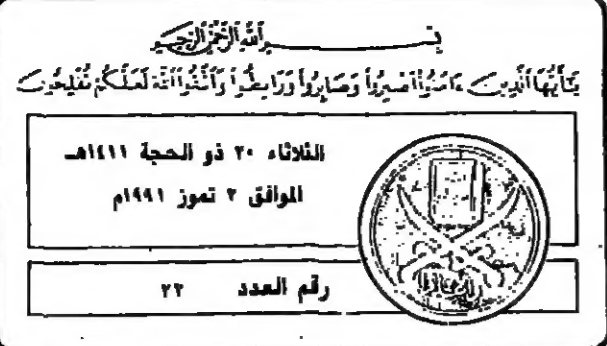 بِسْمِ اللَّهِ الرَّحْمَٰنِ الرَّحِيمِ
يَٰأَيُّهَا ٱلَّذِينَ ءَامَنُوا۟ ٱصْبِرُوا۟ وَصَابِرُوا۟ وَرَابِطُوا۟ وَٱتَّقُوا۟ ٱللَّهَ لَعَلَّكُمْ تُفْلِحُونَ
الثلاثاء ٢٠ ذو الحجة ١٤١١هـ
الموافق ٢ تموز ١٩٩١م
رقم العدد ٢٢